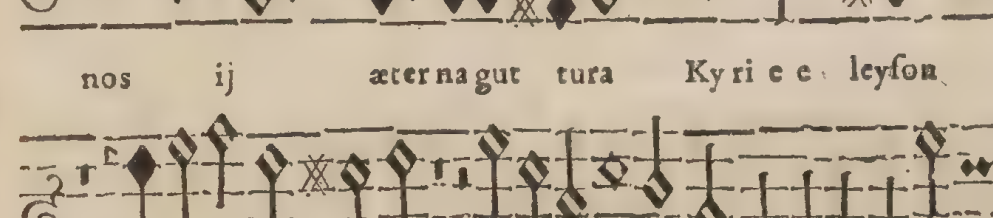 nos ij æter na gut tura Ky ri e e leyſon